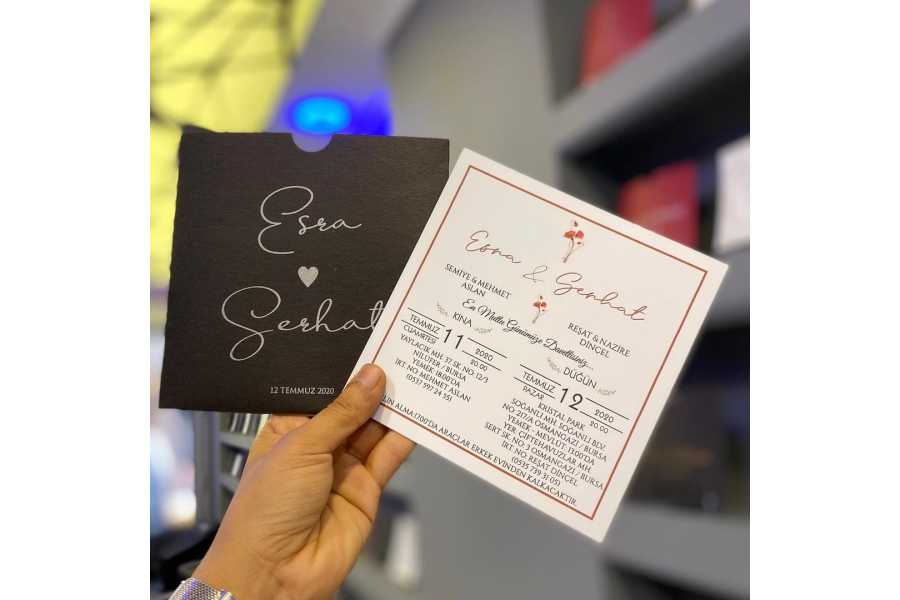 Esra
Serhat
12 TEMMUZ 2020
Esra & Serhat
SEMİYE & MEHMET
ASLAN
REŞAT & NAZİRE
DİNÇEL
En Mutlu Günümüze Davetlisiniz...
KINA
TEMMUZ 11 2020
CUMARTESİ 20:00
YAYLACIK MH. 37. SK. NO: 12/3
NİLÜFER / BURSA
YEMEK: 18:00'DA
İRT. NO: MEHMET ASLAN
(0537 597 24 35)
DÜĞÜN
TEMMUZ 12 2020
PAZAR 20:00
KRİSTAL PARK
SOĞANLI MH. SOĞANLI BLV.
NO: 217/A OSMANGAZİ / BURSA
YEMEK - MEVLÜT: 13:00'DA
YER: ÇİFTEHAVUZLAR MH.
SERT SK. NO: 3 OSMANGAZİ / BURSA
İRT. NO: REŞAT DİNÇEL
(0535 739 31 05)
ALMA: 17:00'DA ARAÇLAR ERKEK EVİNDEN KALKACAKTIR.